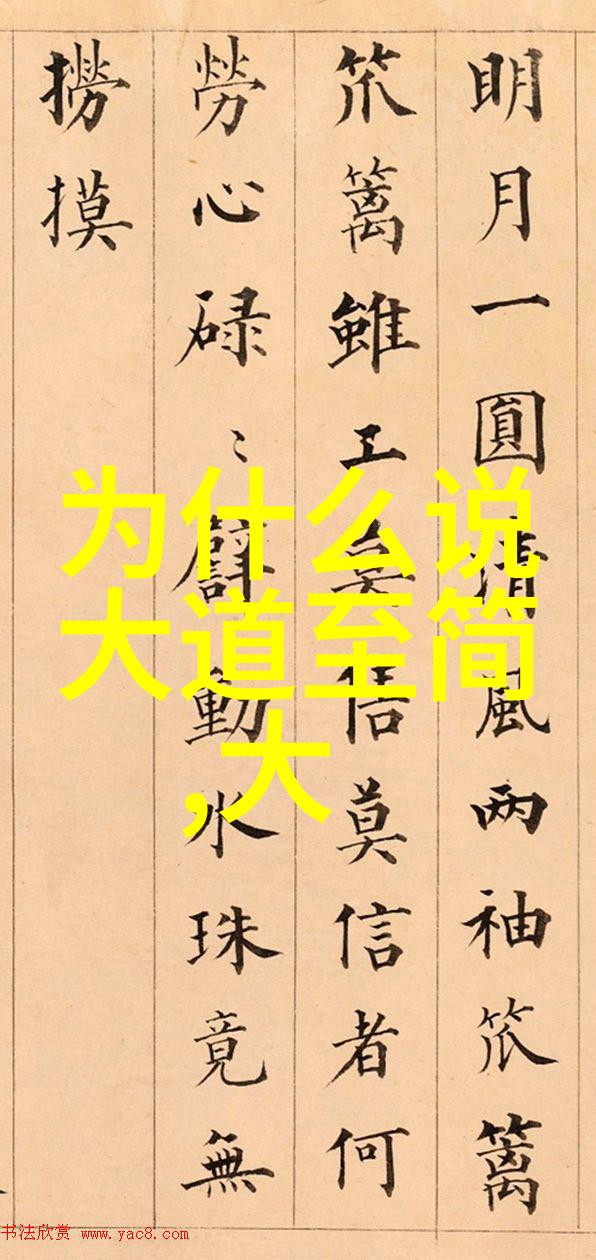 明月一圓清風两袖笊篱
笊篱雖工莫信者何
勞心碌〻動水珠竟無
撈摸
为什么说
大道至简
,大
书法欣赏 www.yac8.com